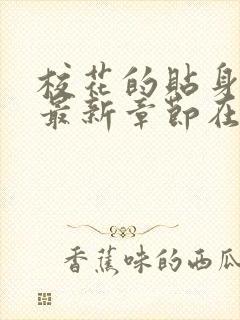 校花的贴身
最新章节在
香蕉味的西瓜